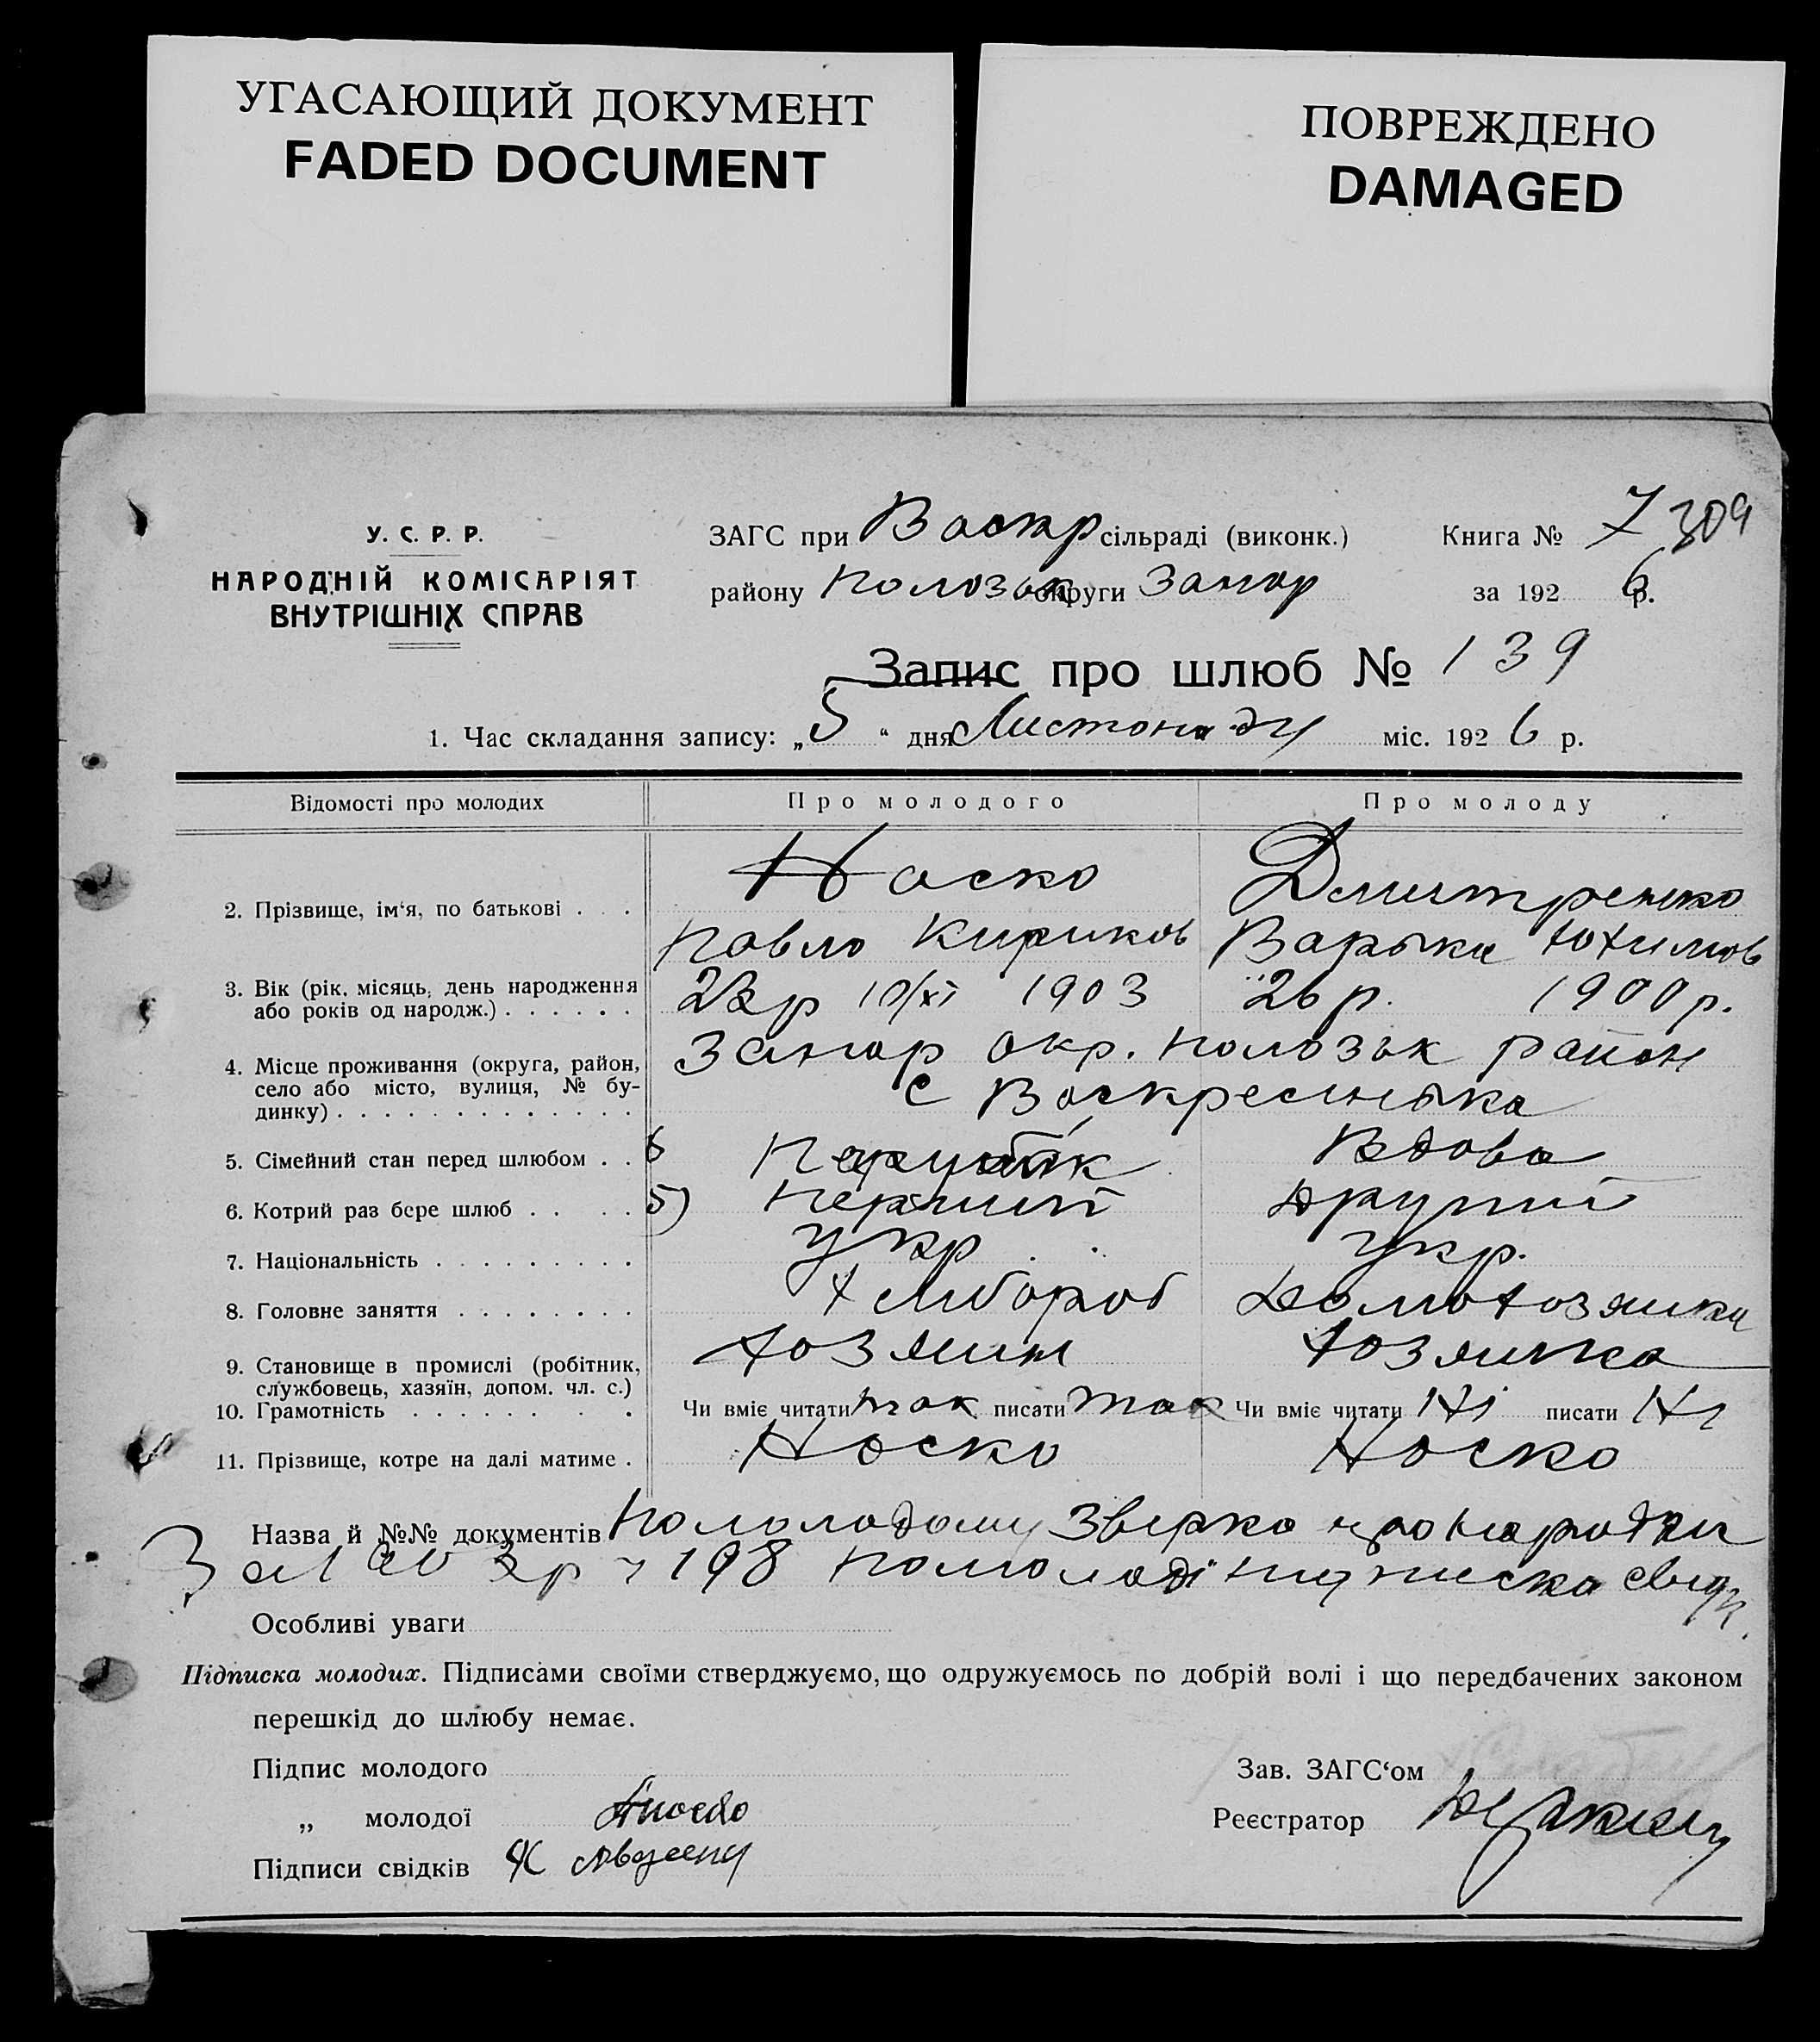 УГАСАЮЩИЙ ДОКУМЕНТ
FADED DOCUMENT
ПОВРЕЖДЕНО
DAMAGED
У. С. Р. Р.
НАРОДНІЙ КОМІСАРІЯТ
ВНУТРІШНІХ СПРАВ
ЗАГС при Воскр сільраді (виконк.)
району Полозьк округи Запор
Книга № 7 309
за 192 6 р.
Запис про шлюб № 139
1. Час складання запису: „5“ дня Листопаду міс. 192 6 р.
Відомості про молодих Про молодого Про молоду
2. Прізвище, ім‘я, по батькові . . . Носко Дмитренко
Павло Кириков Варька Юхимов
3. Вік (рік, місяць, день народження 23р 10/XI 1903 26 р. 1900 р.
або років од народж.) . . . . . .
4. Місце проживання (округа, район, Запор окр. Полозьк район
село або місто, вулиця, № бу- с Воскресенька
динку) . . . . . . . . . . . . .
5. Сімейний стан перед шлюбом . . Парубок Вдова
6. Котрий раз бере шлюб . . . . 5) перший другий
7. Національність . . . . . . . . . укр укр.
8. Головне заняття . . . . . . . . Хлібороб Домохозяйка
9. Становище в промислі (робітник, хозяин хозяйка
службовець, хазяїн, допом. чл. с.)
10. Грамотність . . . . . . . . Чи вміє читати так писати так Чи вміє читати Ні писати Ні
11. Прізвище, котре на далі матиме . Носко Носко
Назва й №№ документів По молодому Звірка про народжен
За 190 3 р ч 198 по молоді підписка свідк.
Особливі уваги
Підписка молодих. Підписами своїми стверджуємо, що одружуємось по добрій волі і що передбачених законом
перешкід до шлюбу немає.
Підпис молодого
„ молодої
Підписи свідків
Зав. ЗАГС‘ом
Реєстратор